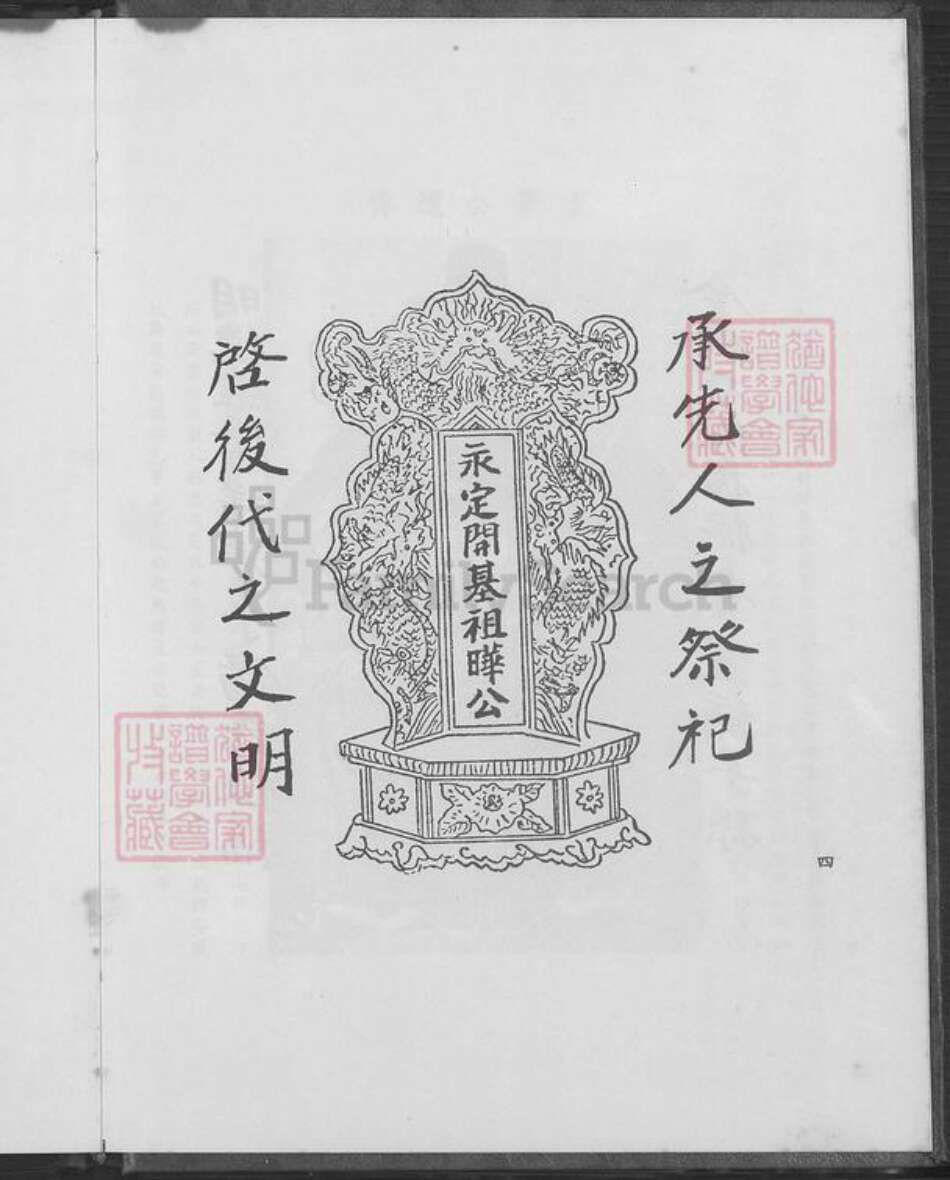 承先人之祭祀
永定開基祖曄公
啓後代之文明
四
FamilySearch